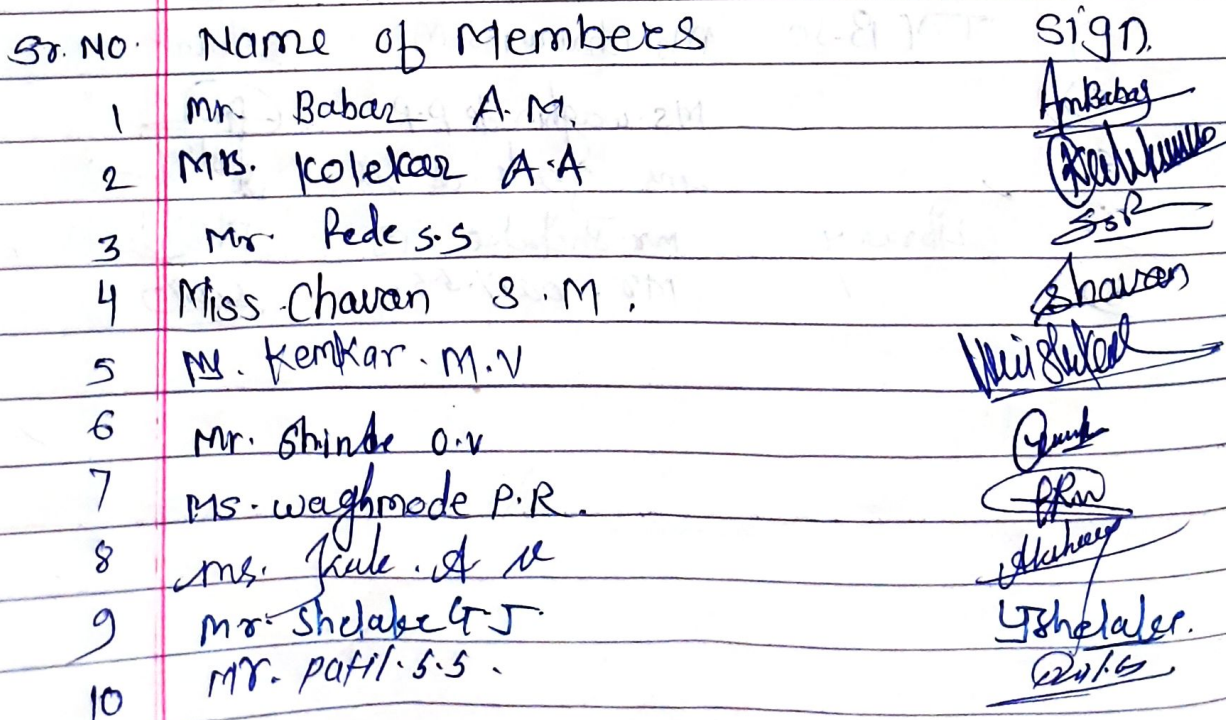 Sr. No. Name of Members Sign.
1 Mr. Babar A.M. AmBabar
2 Mrs. Kolekar A.A
3 Mr. Pede S.S SSP
4 Miss Chavan S.M. Chavan
5 Kemkar. M.V
6 Mr. Shinde O.V
7 Ms. Waghmode P.R. PRW
8 Ms. Kale. A V
9 Mr. Shelake G.J. GJShelake.
10 Mr. Patil. S.S.